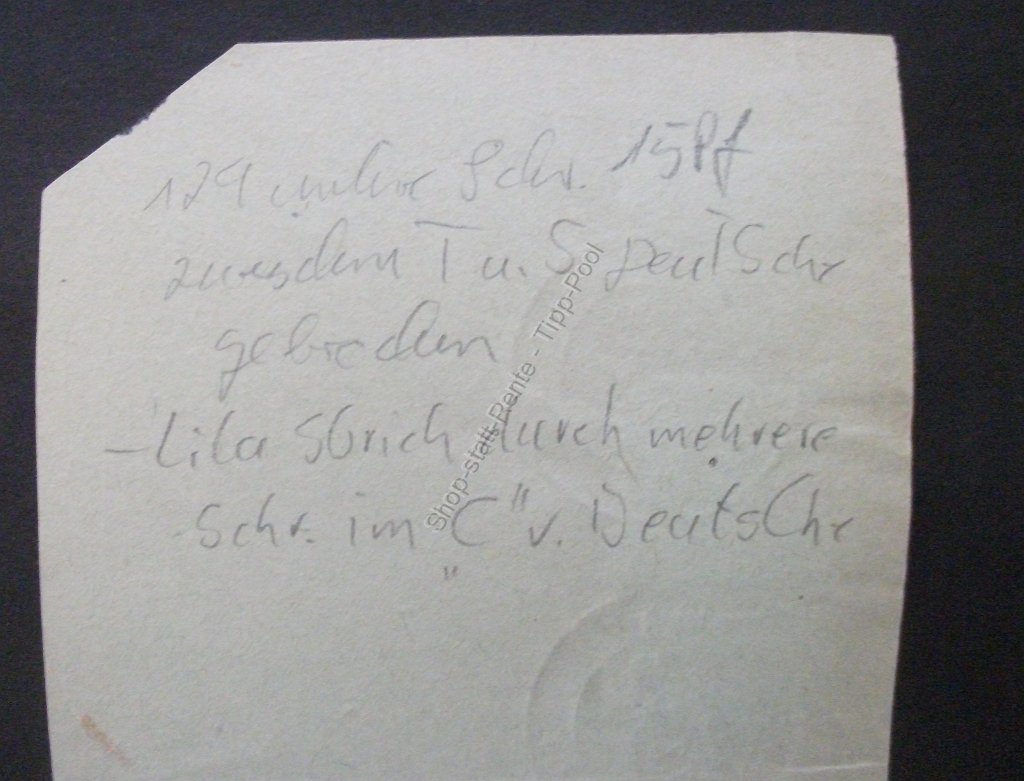 129 untere Schr. 15Pf
zwischen T u. S Deutsche
gebrochen
- Lila Strich durch mehrere
Schr. im "C" v. Deutsche
Shop-statt-Rente - Tipp-Pool